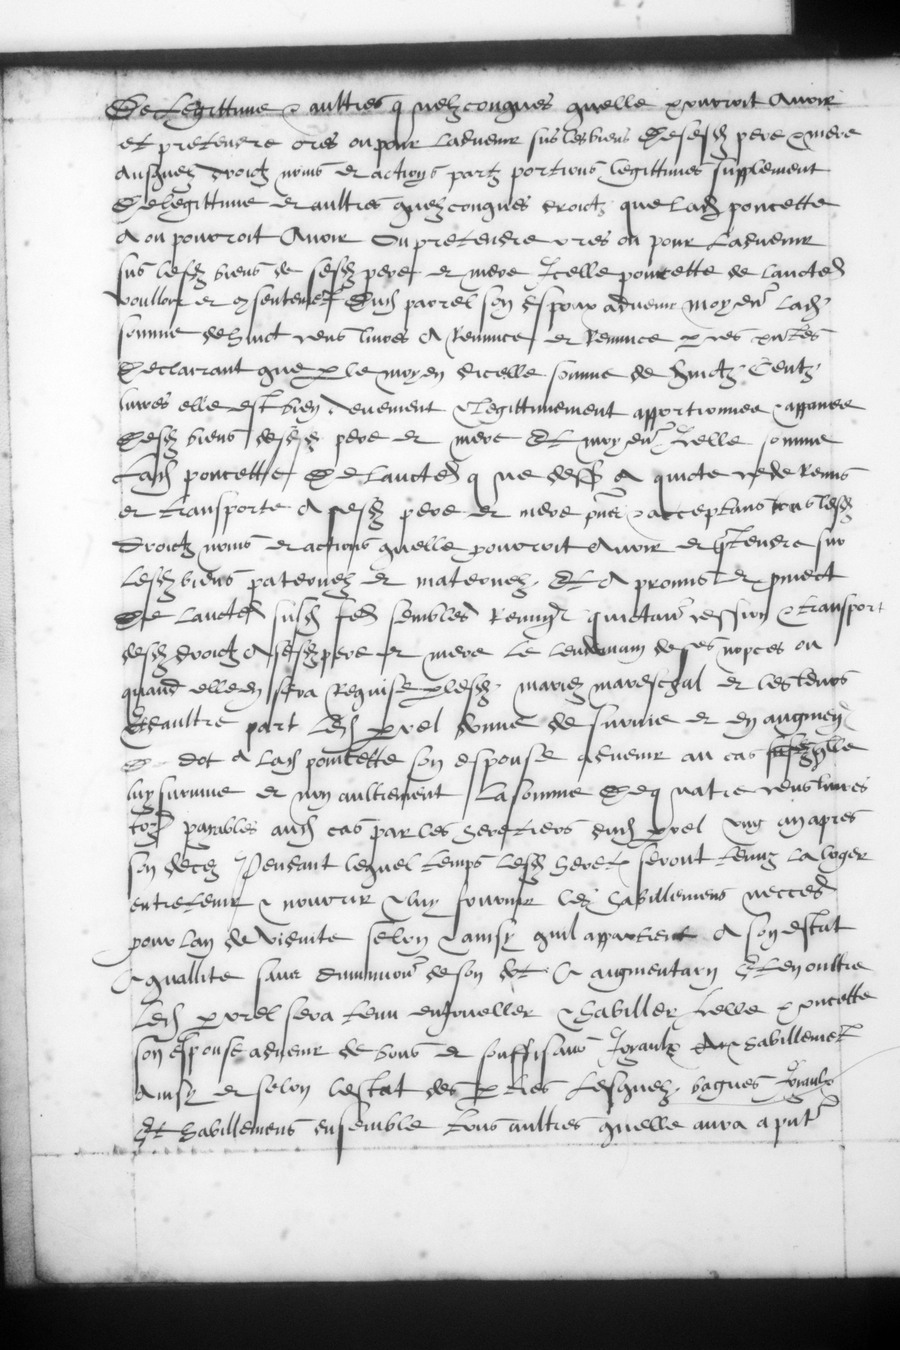 De legittime & aultres quelzconques quelle pourroit avoir
et pretendre ores ou pour ladvenir sus les biens desesd pere & mere
Ausquelz droictz noms et actions partz portions legittimes supplement
De legittime et aultres quelzconques droictz que lad poncette
A ou pourroit Avoir Ou pretendre ores ou pour Ladvenir
sus lesd biens de sesd pere et mere Icelle poncette de lauctes
voulloir et consentemet Dud parrel son espoux advenir moyent lad
somme dehuict cens livres A Renunce et Renunce p ces pntes
Declarrant que p le moyen dicelle somme de huictz Centz
livres elle est bien deuement & Legittimement apportionnee & appanee
Desd biens desd pere et mere Et moyent Icelle somme
Lad poncette De Lauctes que dess A quicte cede Remis
et transporte A sesd pere et mere pnts & acceptans tous lesd
Droictz noms et actions quelle pourroit Avoir et ptendre sur
Lesd biens paternelz et maternelz. Et A promis et pmect
De Lauctes susd fe semblables Renun quictan cession & transport
desd droictz A sesd pere et mere Le lendemain de ses nopces ou
quand elle en sera Requise p lesd mariez mareschal et les leurs
Et daultre part Led parrel donne de survie et en augmen
D dot A Lad poncette son espouse advenir au cas quelle
luy survive et non aultrement La somme de quatre cens livres
tor payables aud cas par les heretiers dud parrel ung an apres
son deces Pendant lequel temps lesd heret seront tenuz La loger
entretenir & nourrir & luy fournir les habillemens necces
pour lan de viduite selon & ainsy quil appartient A son estat
& quallite sans diminution de son dot & augmentation Et en oultre
Led parrel sera tenu enjoueller & habiller Icelle poncette
son espouse advenir de bons et souffisans Joyaulx & habillemet
Ainsy et selon lestat des pties Lesquelz bagues Joyaulx
Et habillemens ensemble tous aultres quelle aura apnt